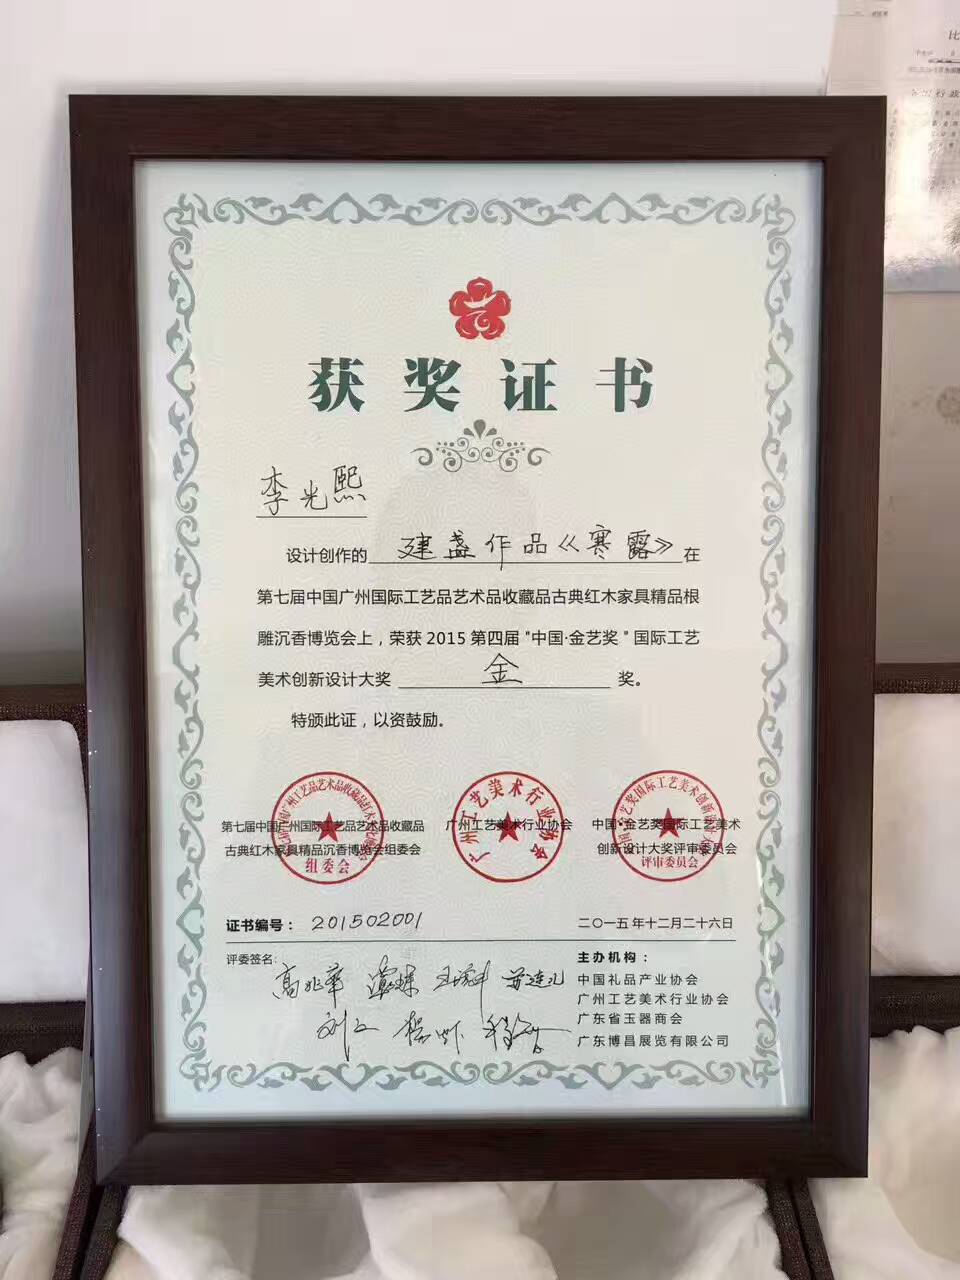 获奖证书
李光熙
设计创作的 建盏作品《寒露》在
第七届中国广州国际工艺品艺术品收藏品古典红木家具精品根
雕沉香博览会上，荣获 2015 第四届 "中国·金艺奖 " 国际工艺
美术创新设计大奖 金 奖。
特颁此证，以资鼓励。
第七届中国广州国际工艺品艺术品收藏品
古典红木家具精品沉香博览会组委会
组委会
广州工艺美术行业协会
广州工艺美术行业协会
中国·金艺奖国际工艺美术
创新设计大奖评审委员会
评审委员会
证书编号： 201502001
二〇一五年十二月二十六日
评委签名：
高兆华
主办机构：
中国礼品产业协会
广州工艺美术行业协会
广东省玉器商会
广东博昌展览有限公司